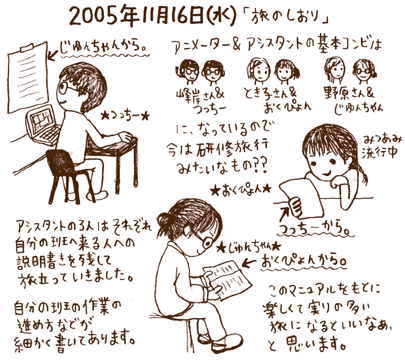 2005年11月16日(水)「旅のしおり」
じゅんちゃんから。
★つっちー★
アニメーター&アシスタントの基本コンビは
峰岸さん&
つっちー
ときるさん&
おくぴょん
野原さん&
じゅんちゃん
に、なっているので
今は研修旅行
みたいなもの??
みつあみ
流行中
★おくぴょん★
つっち〜から。
アシスタントの3人はそれぞれ
自分の班へ来る人への
説明書きを残して
旅立っていきました。
自分の班の作業の
進め方などが
細かく書いてあります。
★じゅんちゃん★
おくぴょんから。
このマニュアルをもとに
楽しくて実りの多い
旅になるといいなぁ、
と思います。